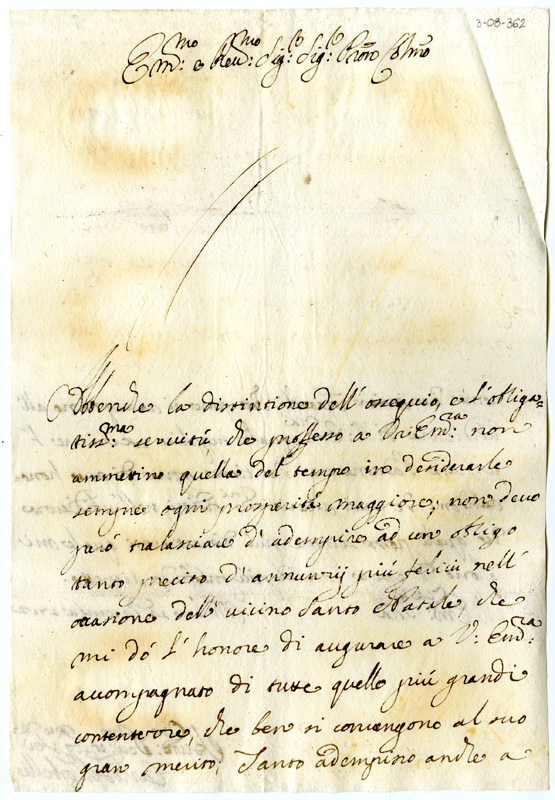 3-08-362
Em.mo e Reu.mo Sig.re Sig.re Prone Colmo
Abenche la distintione dell' ossequio, e l'obliga=
tiss.ma seruitù che professo a V.ra Em.za non
ammettino quella del tempo in desiderarle
sempre ogni prosperità maggiore; non deuo
però tralasciare d' adempire ad un' obligo
tanto preciso d' annuntij più felici nell'
occasione dell' uicino Santo Natale, che
mi dò l' honore di augurare a V. Em.za
accompagnato di tutte quelle più grandi
contentezze, che ben si conuengono al suo
gran merito; Tanto adempisco anche a